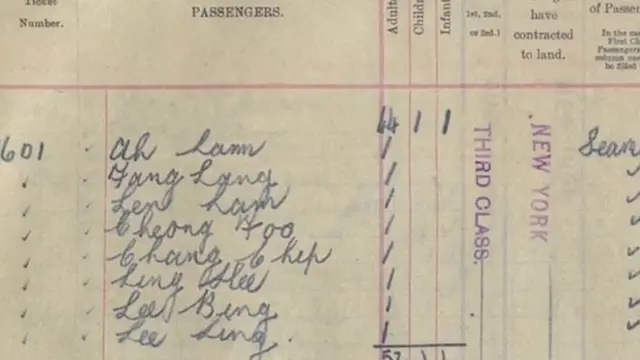 Ticket Number.
PASSENGERS.
Adults
Childr
Infant
1st, 2nd, or 3rd.)
have contracted to land.
of Passe
In the
First Cl
Passengers
column
be filled
44 1 1
601 Ah Lam 1 Sean
Fang Lang 1
Len Lam 1
Cheong Foo 1
Chang Chip 1
Ling Hee 1
Lee Bing 1
Lee Ling. 1
THIRD CLASS.
NEW YORK
52 1 1